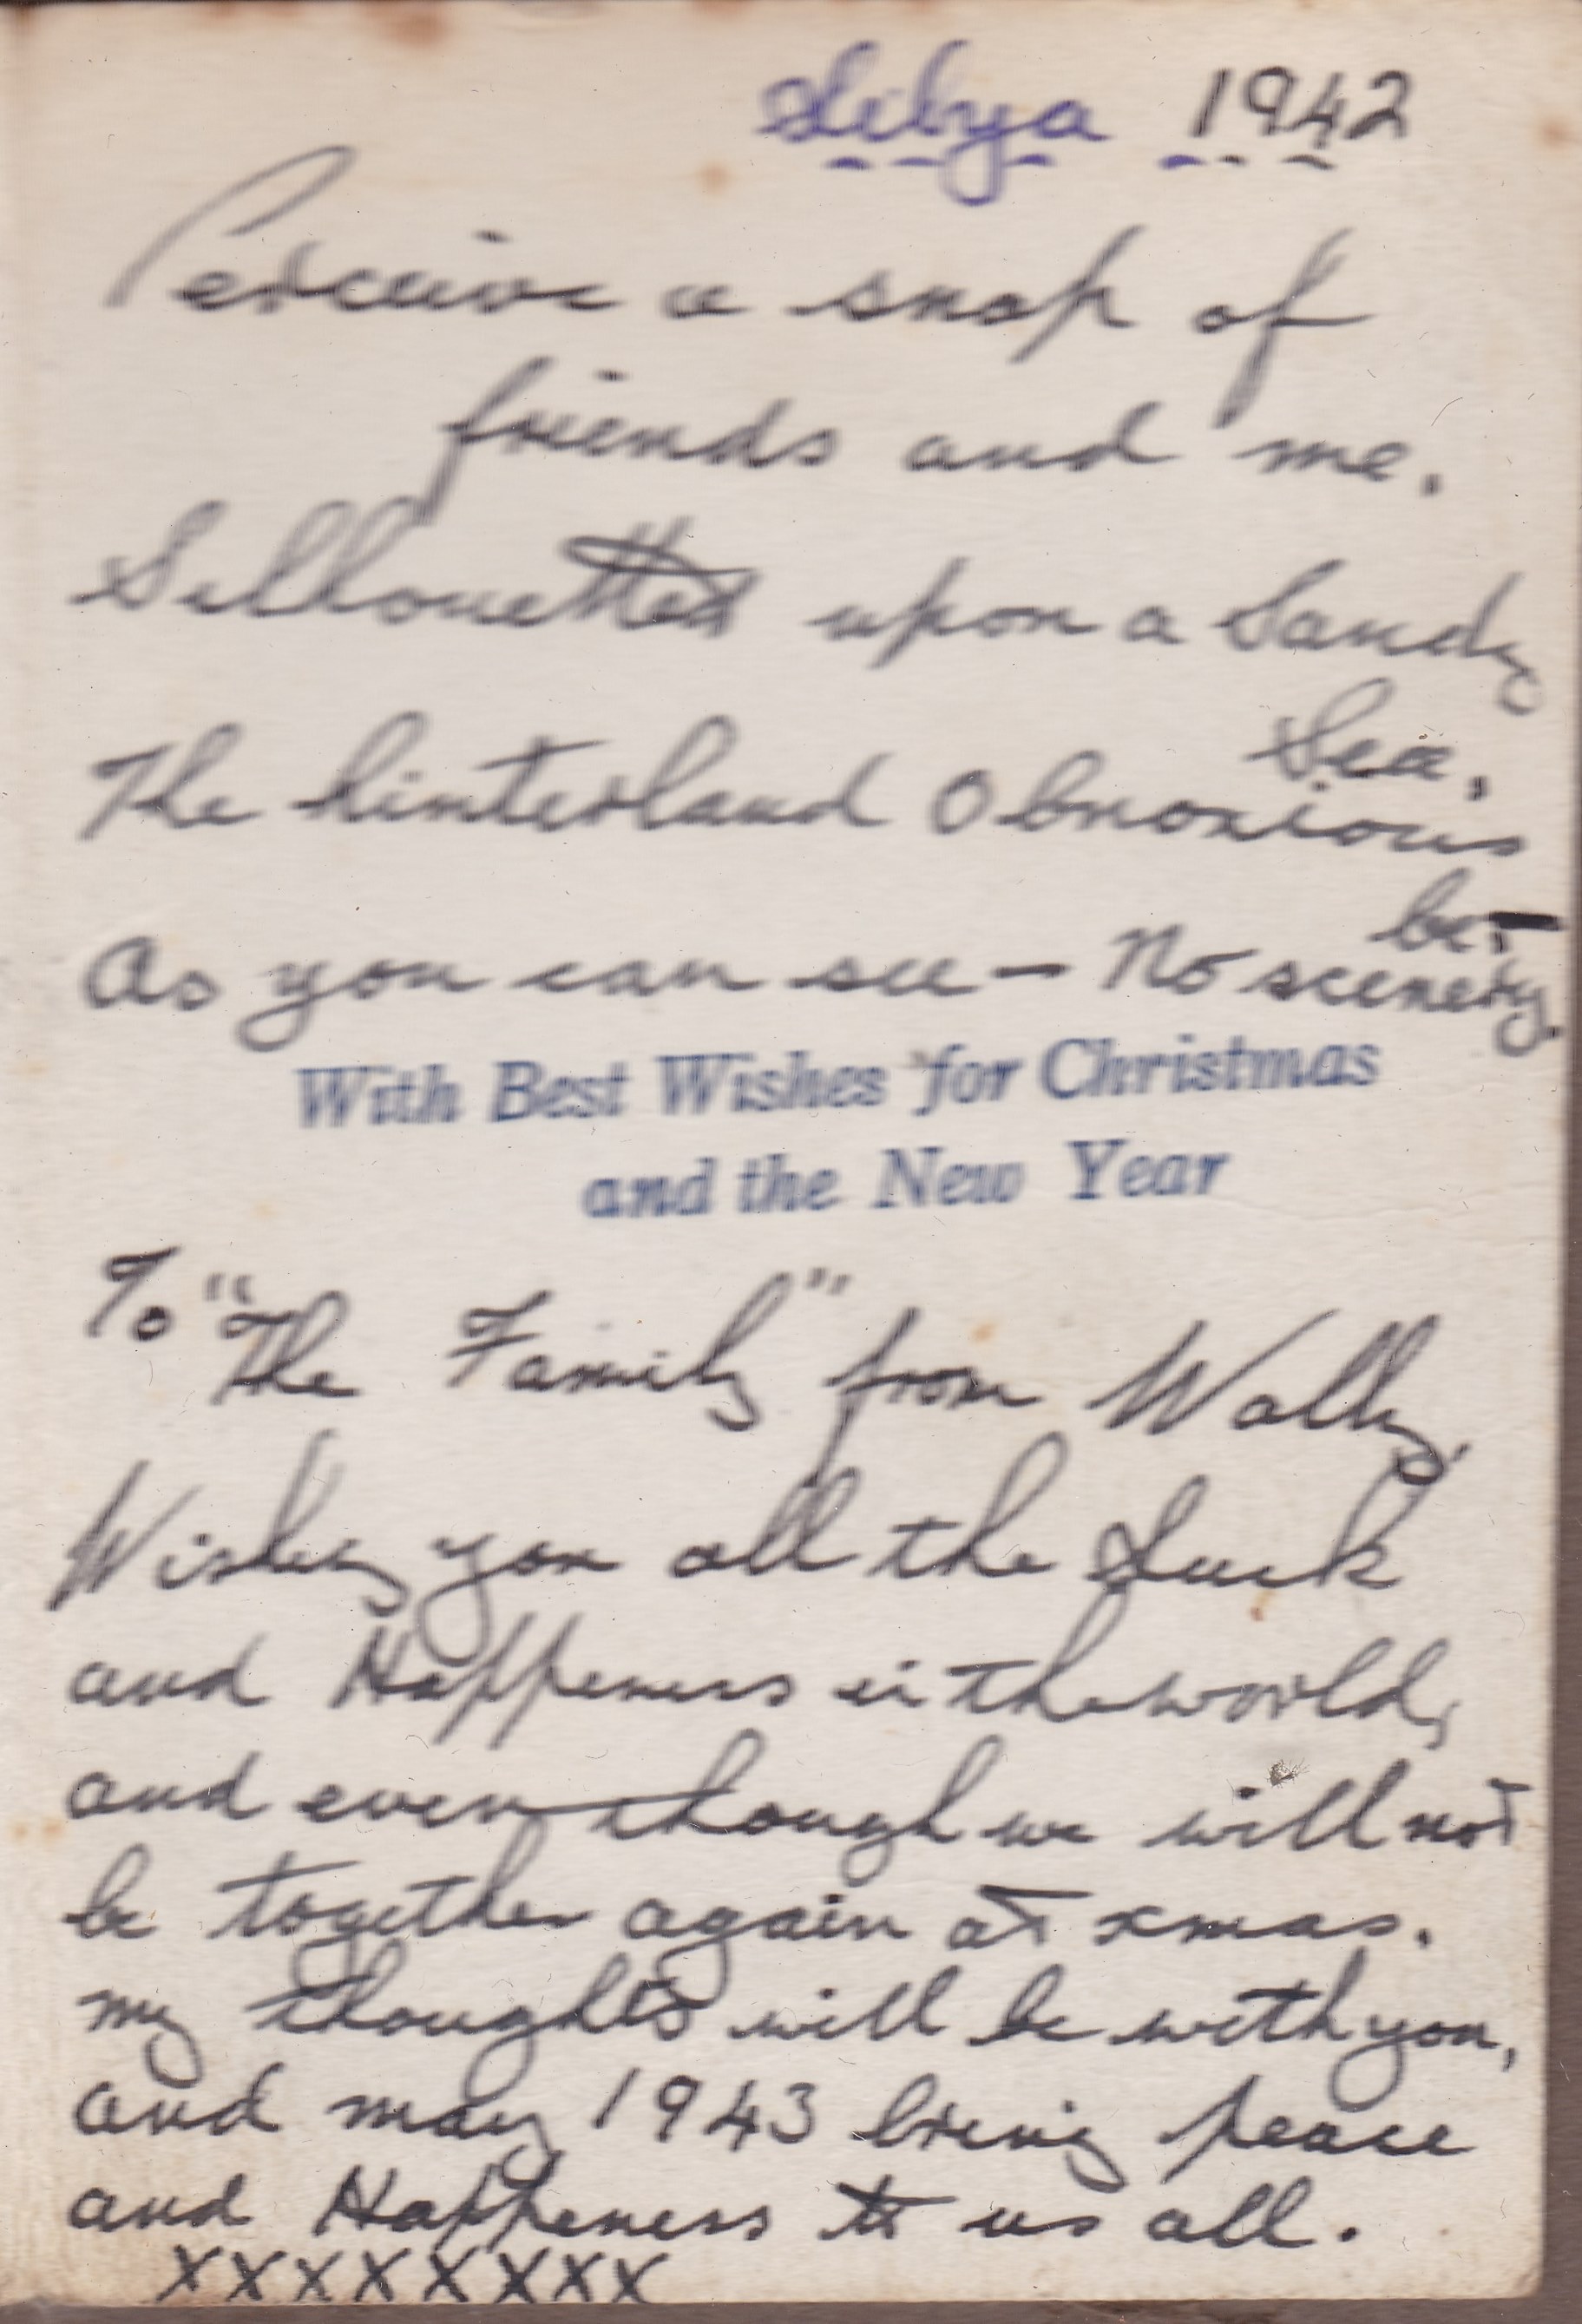 Libya 1942
Perceive a snap of
friends and me.
Silhouetted upon a Sandy
Sea,
The hinterland Obnoxious
be,-
As you can see - No scenery.
With Best Wishes for Christmas
and the New Year
To "The Family" from Wally.
Wishing you all the Luck
and Happeness in the world,
and even though we will not
be together again at xmas.
my thoughts will be with you,
and may 1943 bring peace
and Happeness to us all.
XXXXXXXX